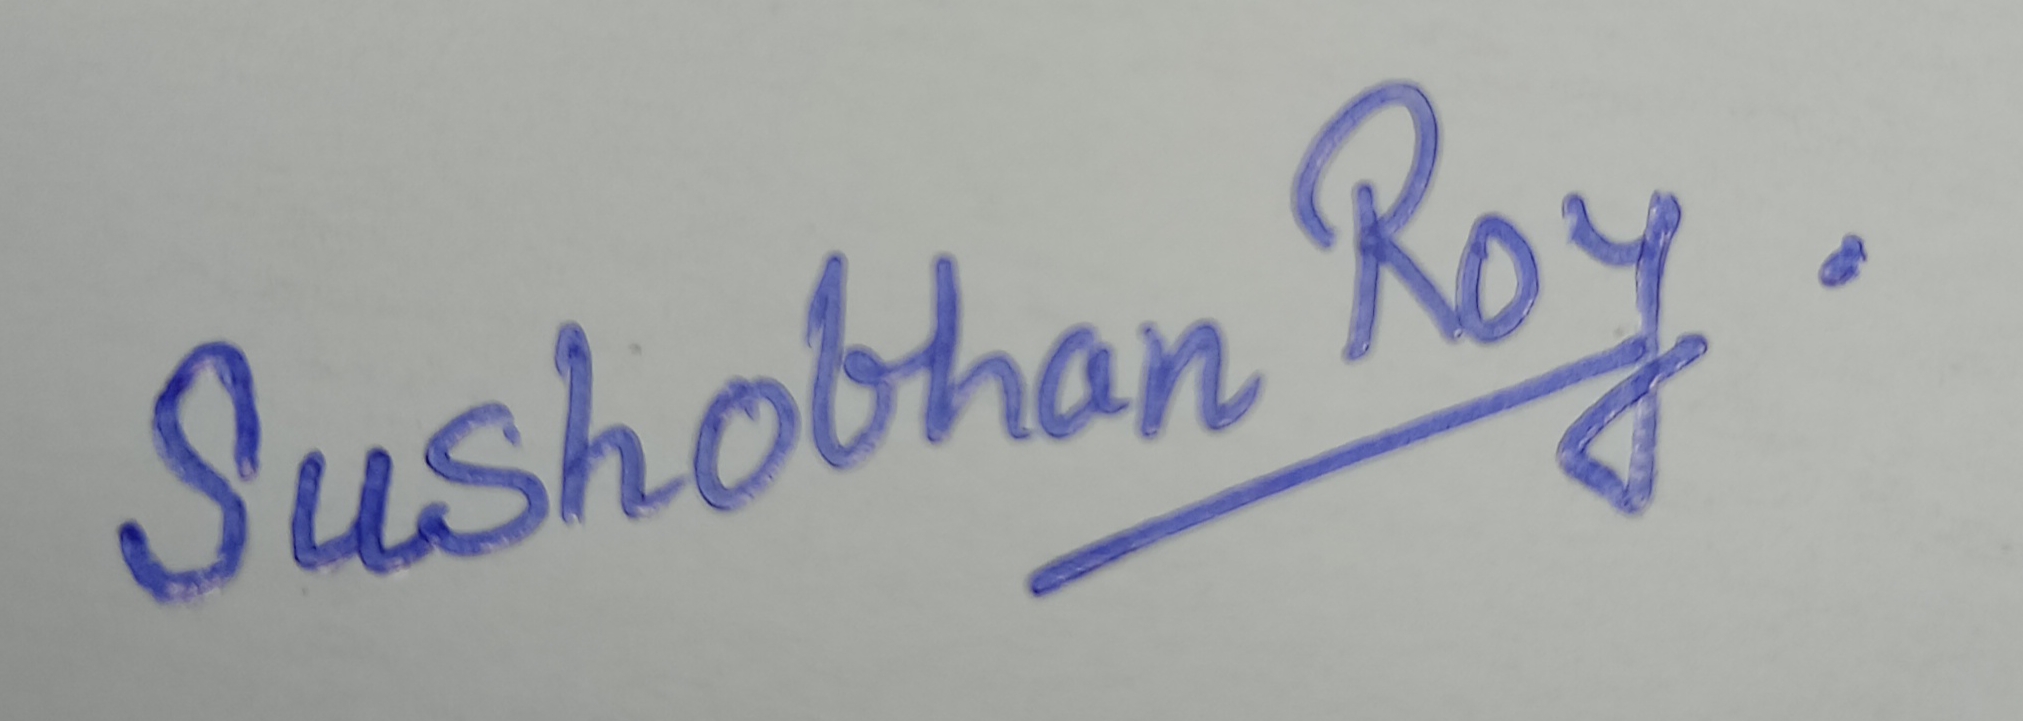 Sushobhan Roy.